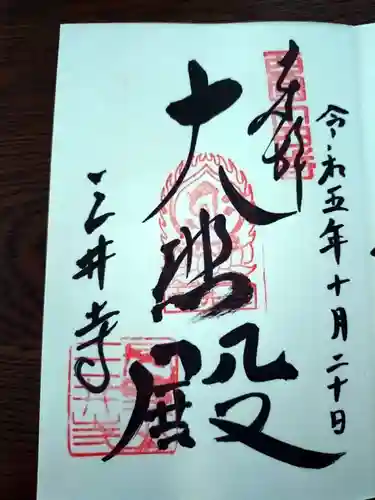 令和五年十月二十日
奉拝
大悲殿
三井寺